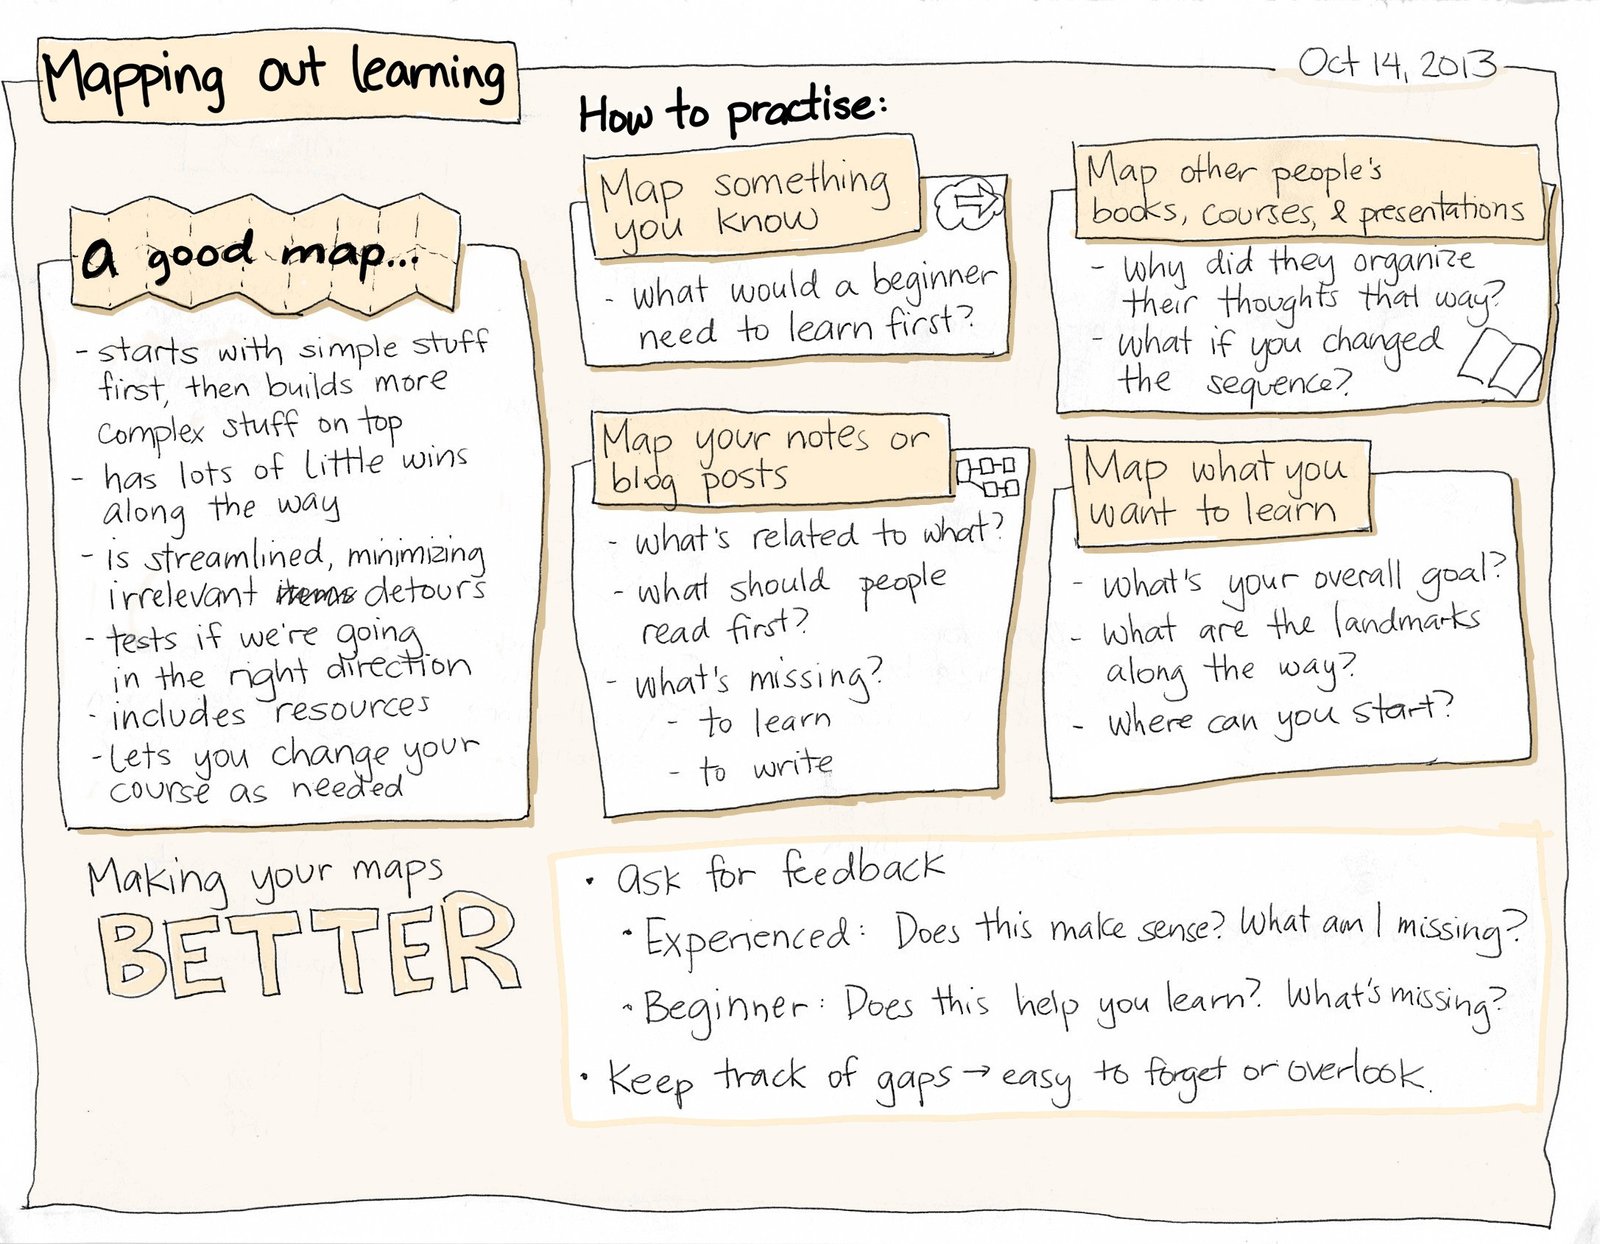 Mapping out learning
Oct 14, 2013
a good map...
- starts with simple stuff
first, then builds more
complex stuff on top
- has lots of little wins
along the way
- is streamlined, minimizing
irrelevant items detours
- tests if we're going
in the right direction
- includes resources
- lets you change your
course as needed
How to practise:
Map something
you know
- what would a beginner
need to learn first?
Map other people's
books, courses, & presentations
- why did they organize
their thoughts that way?
- what if you changed
the sequence?
Map your notes or
blog posts
- what's related to what?
- what should people
read first?
- what's missing?
- to learn
- to write
Map what you
want to learn
- what's your overall goal?
- what are the landmarks
along the way?
- where can you start?
Making your maps
BETTER
• ask for feedback
• Experienced: Does this make sense? What am I missing?
• Beginner: Does this help you learn? What's missing?
• Keep track of gaps → easy to forget or overlook.